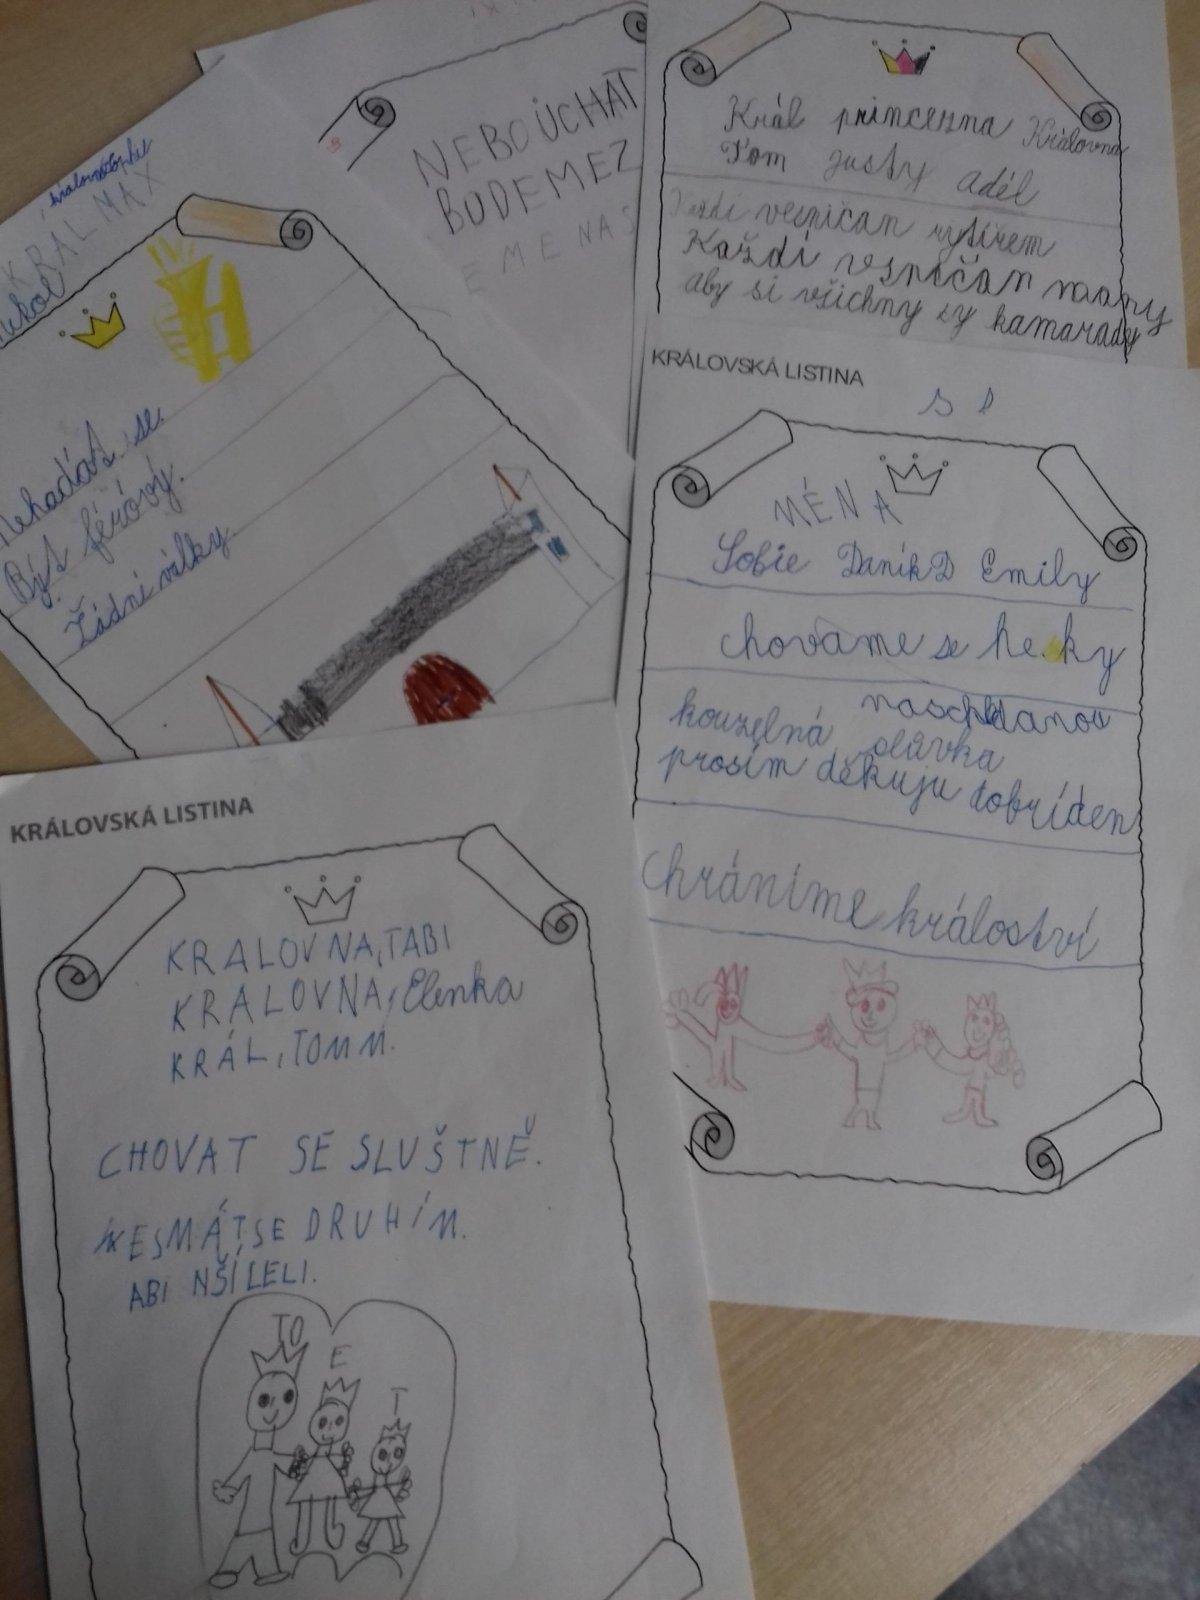 KRÁL MAX
Nehádat se.
Být férový.
Žádné války
NEBOUCHAT
BUDEME Z
EME NAS
Král princezna Královna
Tom justy adél
vesničan rytířem
Každí vesničan
aby si všichny
kamarady
KRÁLOVSKÁ LISTINA
MÉNA
Sobie Daník D Emily
chováme se he ky
naschldanou
kouzelná slůvka
prosím děkuju dobríden
chráníme králoství
KRÁLOVSKÁ LISTINA
KRALOVNA, TABI
KRALOVNA, Elenka
KRÁL, TOMM.
CHOVAT SE SLUŠTNĚ.
NESMÁTSE DRUHÍM.
ABI NŠÍLELI.
TO
E
T